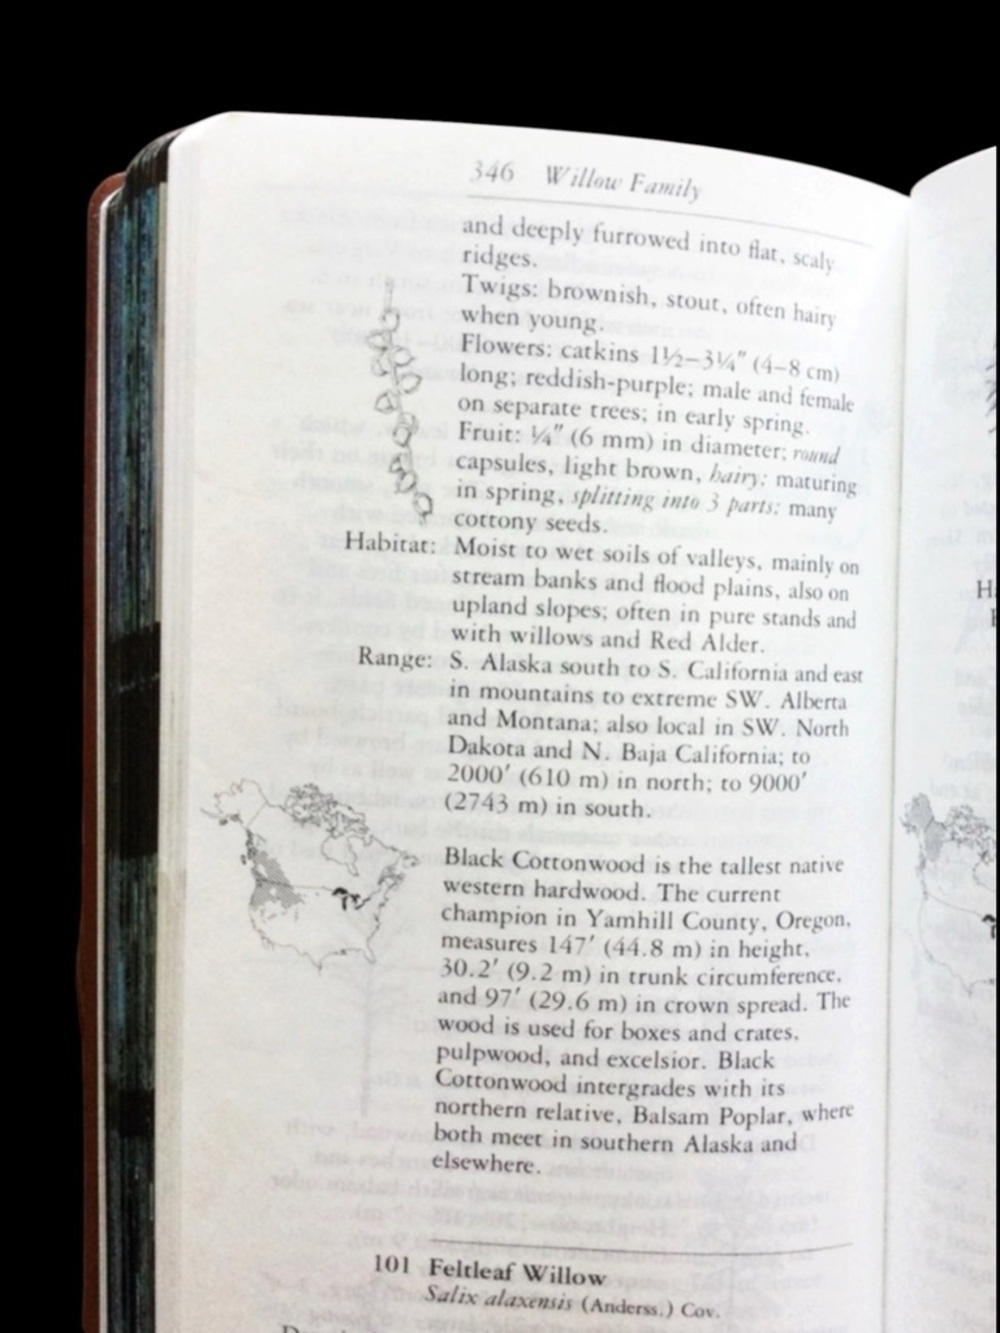 346 Willow Family
and deeply furrowed into flat, scaly
ridges.
Twigs: brownish, stout, often hairy
when young.
Flowers: catkins 1½–3¼" (4–8 cm)
long; reddish-purple; male and female
on separate trees; in early spring.
Fruit: ¼" (6 mm) in diameter; round
capsules, light brown, hairy; maturing
in spring, splitting into 3 parts; many
cottony seeds.
Habitat: Moist to wet soils of valleys, mainly on
stream banks and flood plains, also on
upland slopes; often in pure stands and
with willows and Red Alder.
Range: S. Alaska south to S. California and east
in mountains to extreme SW. Alberta
and Montana; also local in SW. North
Dakota and N. Baja California; to
2000' (610 m) in north; to 9000'
(2743 m) in south.
Black Cottonwood is the tallest native
western hardwood. The current
champion in Yamhill County, Oregon,
measures 147' (44.8 m) in height,
30.2' (9.2 m) in trunk circumference,
and 97' (29.6 m) in crown spread. The
wood is used for boxes and crates,
pulpwood, and excelsior. Black
Cottonwood intergrades with its
northern relative, Balsam Poplar, where
both meet in southern Alaska and
elsewhere.
101 Feltleaf Willow
Salix alaxensis (Anderss.) Cov.